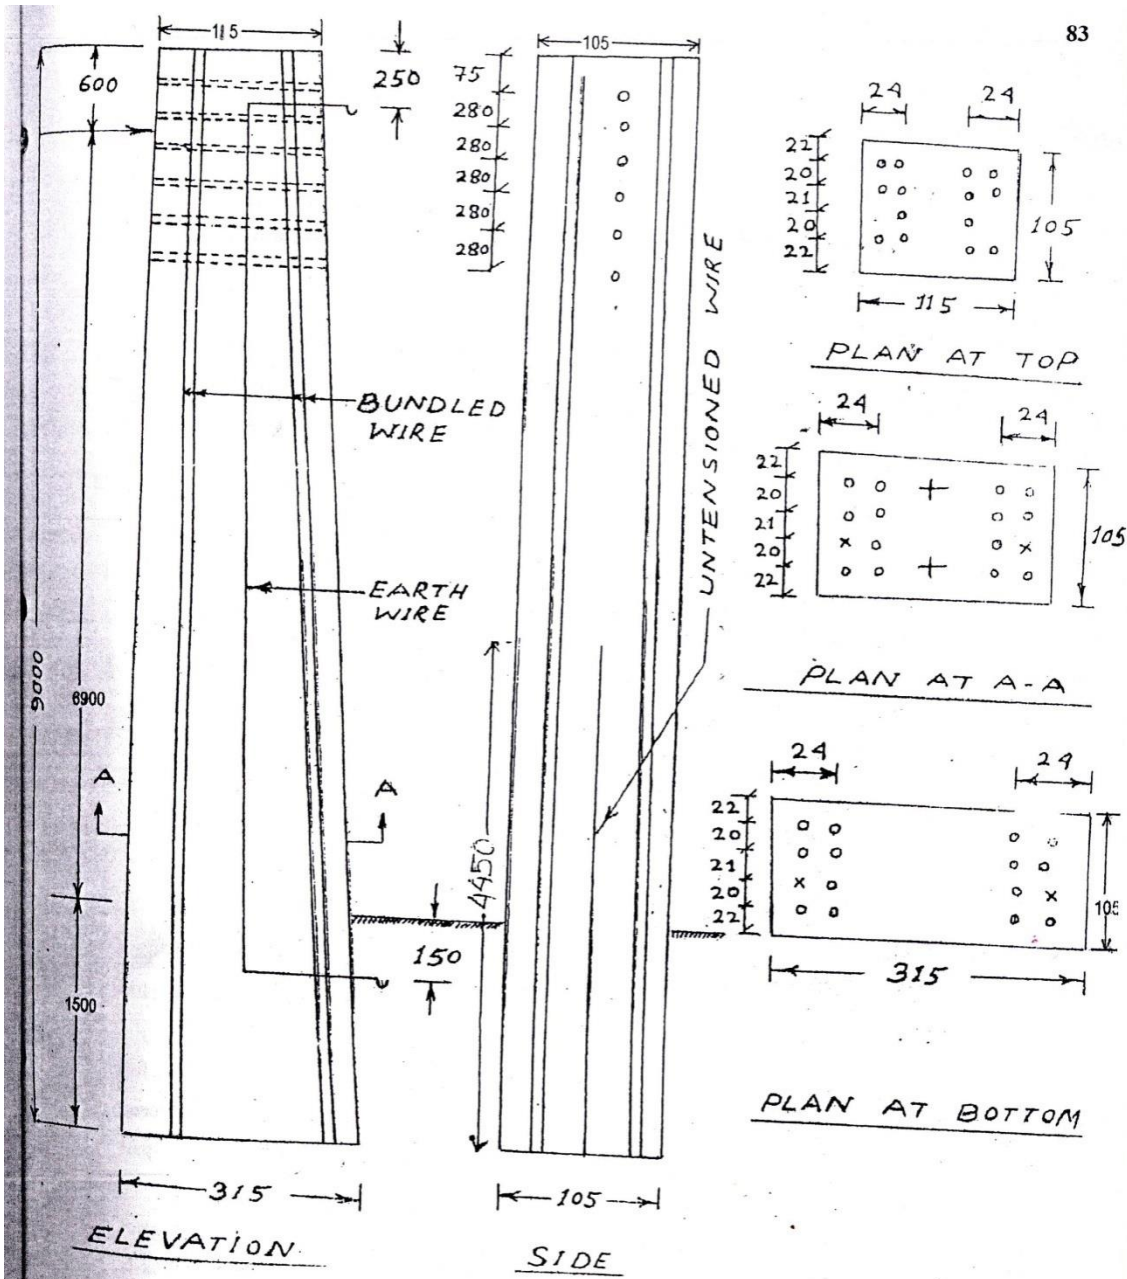 83
115
600
250
BUNDLED
WIRE
EARTH
WIRE
9000
6900
A
A
150
1500
315
ELEVATION
105
75
280
280
280
280
280
UNTENSIONED WIRE
4450
105
SIDE
24
24
22
20
21
20
22
105
115
PLAN AT TOP
24
24
22
20
21
20
22
105
PLAN AT A-A
24
24
22
20
21
20
22
105
315
PLAN AT BOTTOM